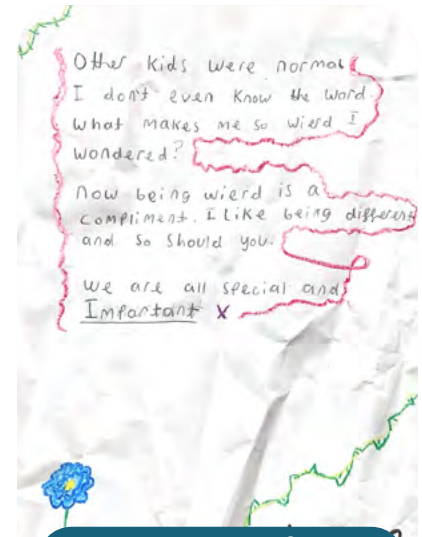 Other kids were normal
I don't even know the word.
What makes me so wierd I
wondered?
Now being wierd is a
compliment. I like being different
and so should you.
We are all special and
Important X